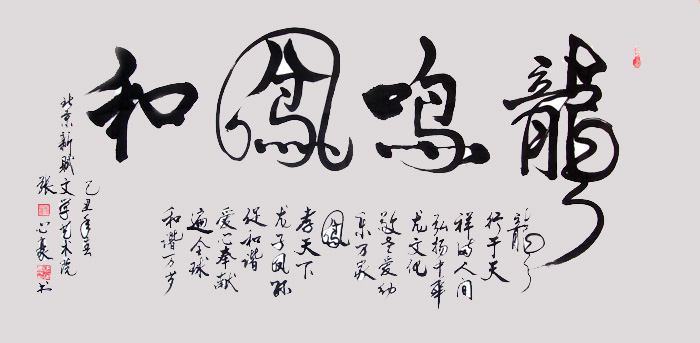 龍鳴鳳和
龍
行于天
祥满人间
弘扬中华
龙文化
敬老爱幼
乐万家
鳳
孝天下
龙子凤孙
促和谐
爱心奉献
遍全球
和谐万岁
己丑年
北京新赋文学艺术院
张
书